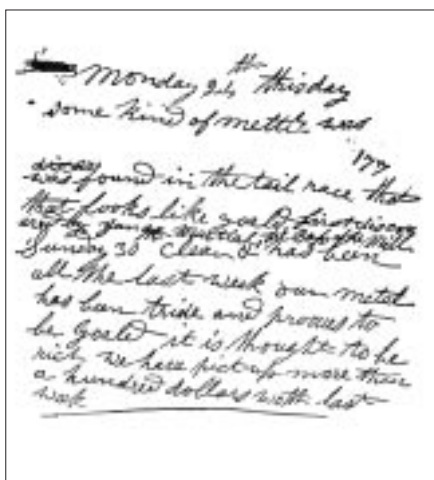 Monday 24 th this day
some kind of mettle was
found in the tail race that
that looks like goald first discov
ered by James Martial, the Boss of the Mill
Sunday 30 clear & has been
all the last week our metal
has been tride and prooves to
be goald it is thought to be
rich we have pict up more than
a hundred dollars worth last
week